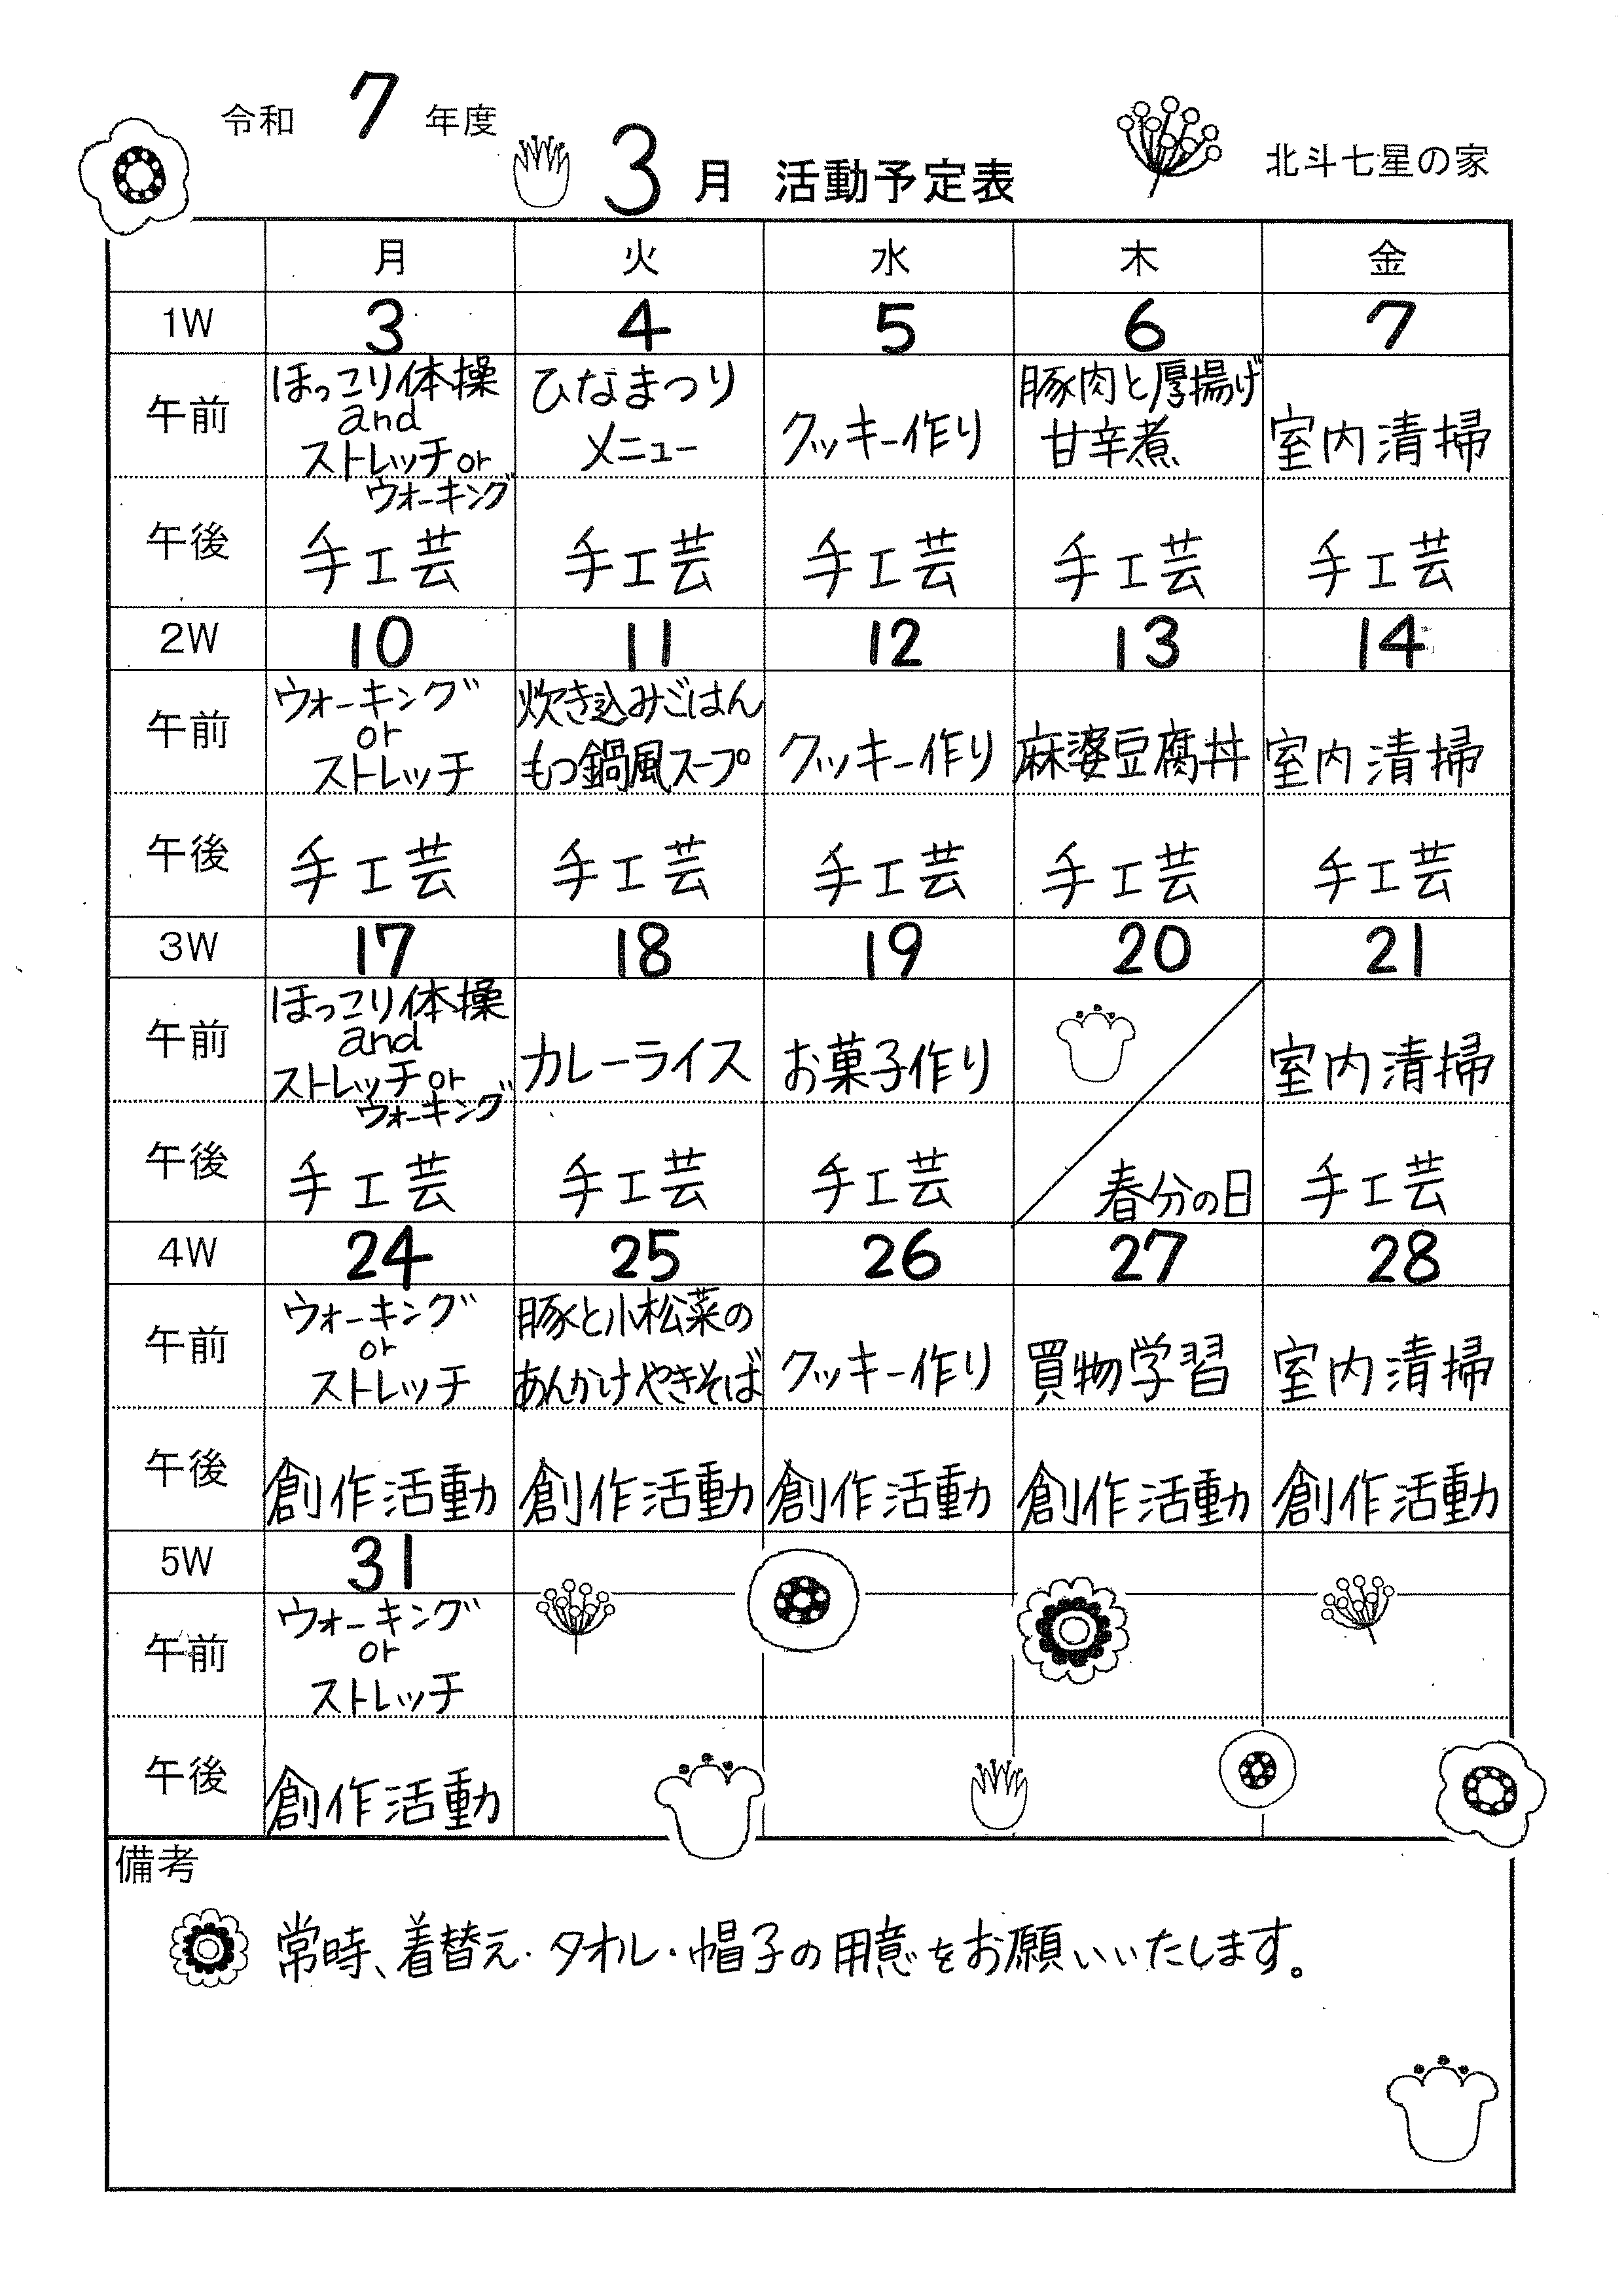 令和 7 年度
3 月 活動予定表
北斗七星の家
月 火 水 木 金
1W 3 4 5 6 7
午前
ほっこり体操
and
ストレッチor
ウォーキング
ひなまつり
メニュー
クッキー作り
豚肉と厚揚げ
甘辛煮
室内清掃
午後 手工芸 手工芸 手工芸 手工芸 手工芸
2W 10 11 12 13 14
午前
ウォーキング
or
ストレッチ
炊き込みごはん
もつ鍋風スープ
クッキー作り
麻婆豆腐丼
室内清掃
午後 手工芸 手工芸 手工芸 手工芸 手工芸
3W 17 18 19 20 21
午前
ほっこり体操
and
ストレッチor
ウォーキング
カレーライス
お菓子作り
室内清掃
午後 手工芸 手工芸 手工芸 春分の日 手工芸
4W 24 25 26 27 28
午前
ウォーキング
or
ストレッチ
豚と小松菜の
あんかけやきそば
クッキー作り
買物学習
室内清掃
午後 創作活動 創作活動 創作活動 創作活動 創作活動
5W 31
午前
ウォーキング
or
ストレッチ
午後 創作活動
備考
常時、着替え・タオル・帽子の用意をお願いいたします。